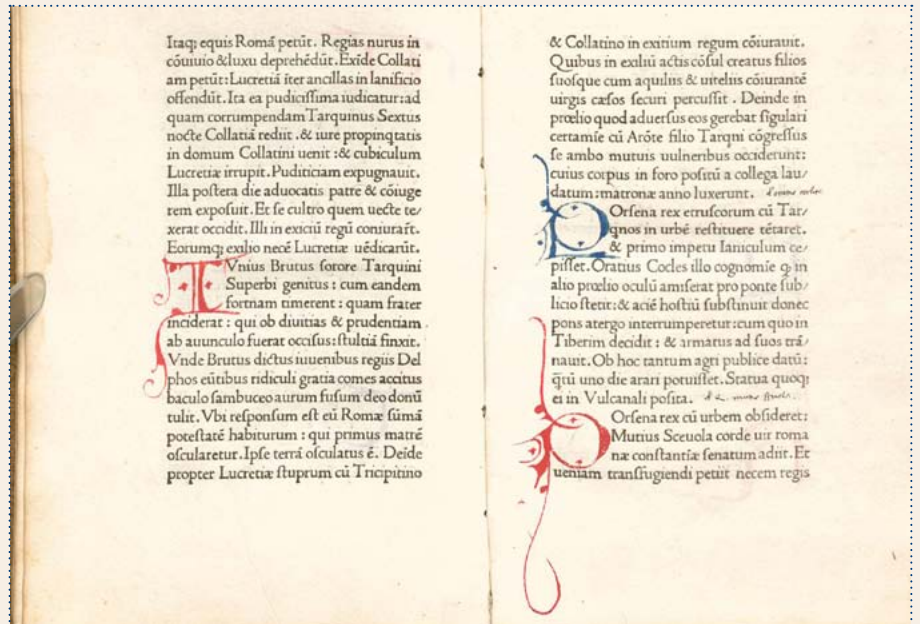 Itaq; equis Romā petūt. Regias nurus in
cōuiuio &luxu deprehēdūt. Exīde Collati
am petūt: Lucretiā īter ancillas in lanificio
offendūt. Ita ea pudicissima iudicatur: ad
quam corrumpendam Tarquinus Sextus
nocte Collatiā rediit .& iure propinqtatis
in domum Collatini uenit :& cubiculum
Lucretiæ irrupit. Puditiciam expugnauit.
Illa postera die aduocatis patre & cōiuge
rem exposuit. Et se cultro quem ueste te/
xerat occidit. Illi in exiciū regū coniurarūt.
Eorumq; exilio necē Lucretiæ uēdicarūt.
IVnius Brutus sorore Tarquini
Superbi genitus : cum eandem
fortnam timerent : quam frater
inciderat : qui ob diuitias & prudentiam
ab auunculo fuerat occisus: stultiā finxit.
Vnde Brutus dictus iuuenibus regiis Del
phos eūtibus ridiculi gratia comes accitus
baculo sambuceo aurum fusum deo donū
tulit. Vbi responsum est eū Romæ sūmā
potestatē habiturum : qui primus matrē
oscularetur. Ipse terrā osculatus ē. Deīde
propter Lucretiæ stuprum cū Tricipitino
& Collatino in exitium regum cōiurauit.
Quibus in exiliū actis cōsul creatus filios
suosque cum aquiliis & uiteliis cōiurantē
uirgis cæsos securi percussit . Deinde in
prœlio quod aduersus eos gerebat sīgulari
certamīe cū Arōte filio Tarqni cōgressus
se ambo mutuis uulneribus occiderunt:
cuius corpus in foro positū a collega lau/
datum: matronæ anno luxerunt.
POrsena rex etruscorum cū Tar/
qnos in urbē restituere tētaret.
& primo impetu Ianiculum ce/
pisset. Oratius Cocles illo cognomīe q in
alio prœlio oculū amiserat pro ponte sub/
licio stetit: & aciē hostiū substinuit donec
pons atergo interrumperetur: cum quo in
Tiberim decidit : & armatus ad suos trā/
nauit. Ob hoc tantum agri publice datū:
q̄tū uno die arari potuisset. Statua quoq;
ei in Vulcanali posita.
POrsena rex cū urbem obsideret:
Mutius Sceuola corde uir roma
næ constantiæ senatum adiit. Et
ueniam transfugiendi petiit necem regis